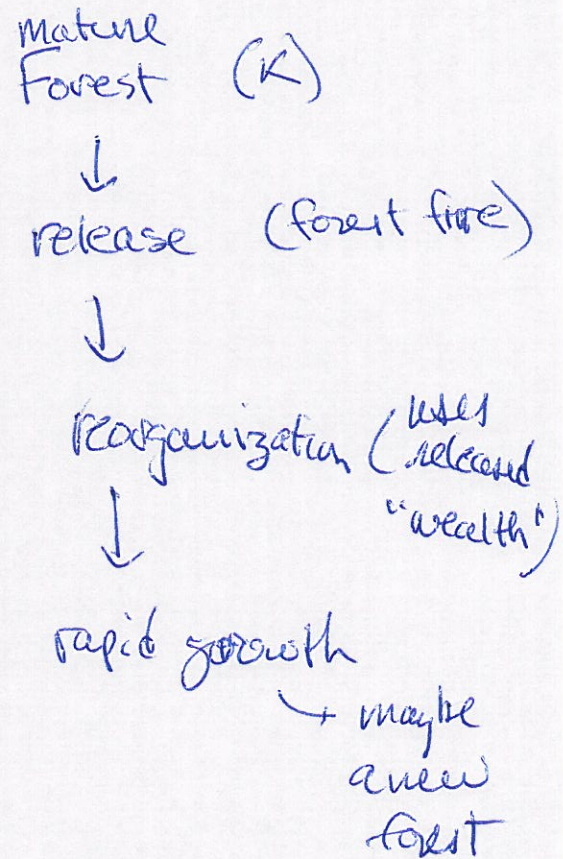 mature
Forest (K)
↓
release (forest fire)
↓
reorganization (uses
released
"wealth")
↓
rapid growth
→ maybe
a new
forest